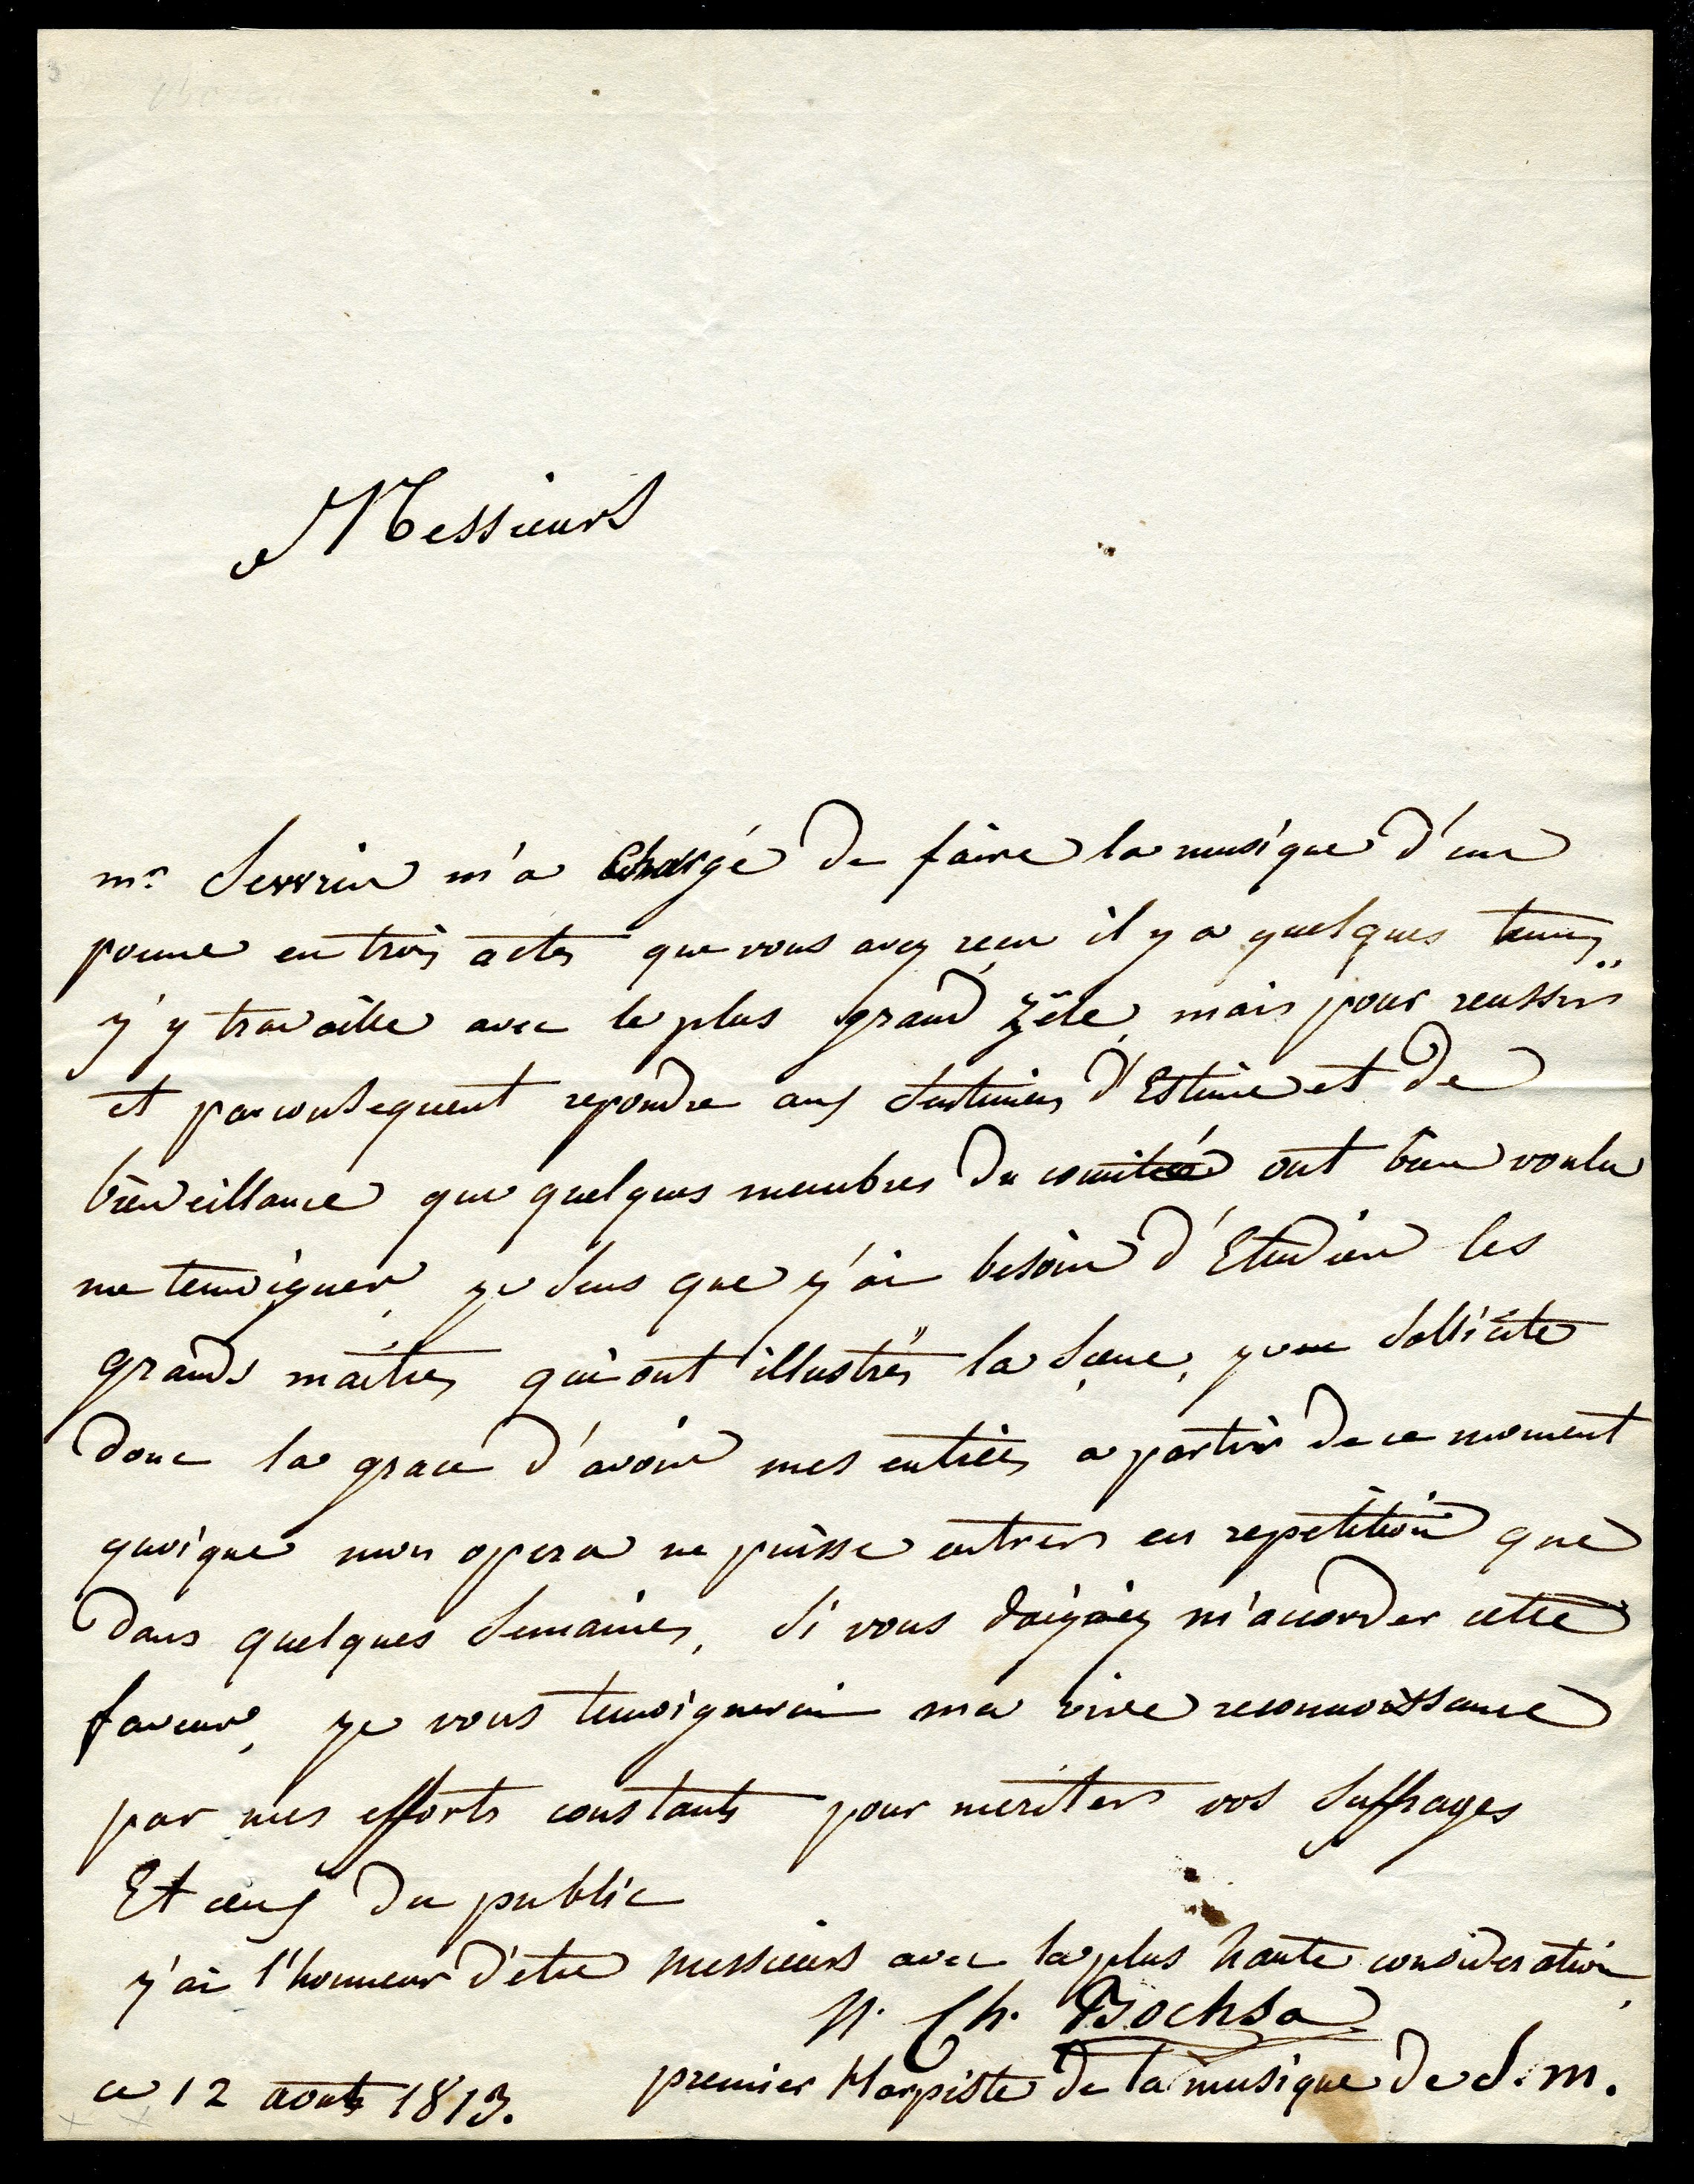 Messieurs
mr. Sewrin m'a Chargé de faire la musique d'un
poeme en trois actes que vous avez recu il y a quelques tems..
j'y travaille avec le plus grand Zêle, mais pour reussir
et parconsequent repondre aux sentimens d'Estime et de
bienveillance que quelques membres du comité ont bien voulu
me temoigner, je sens que j'ai besoin d'Etudier les
grands maitres qui ont illustrés la scene, je me sollicite
donc la grace d'avoir mes entrées a partir de ce moment
quoique mon opera ne puisse entrer en repetition que
dans quelques semaines, si vous daignez m'accorder cette
faveur, je vous temoignerai ma vive reconnoissance
par mes efforts constants pour meriter vos suffrages
Et ceux du public
j'ai l'honneur d'etre messieurs avec la plus haute consideration,
N. Ch. Bochsa
premier Harpiste de la musique de S. M.
ce 12 aout 1813.